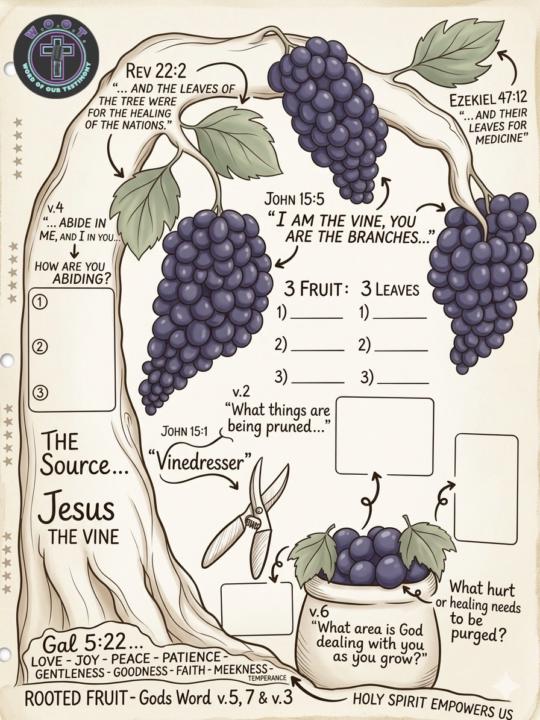 W.O.O.T.
WORD OF OUR TESTIMONY
REV 22:2
"... AND THE LEAVES OF
THE TREE WERE
FOR THE HEALING
OF THE NATIONS."
EZEKIEL 47:12
"...AND THEIR
LEAVES FOR
MEDICINE"
v.4
"... ABIDE IN
ME, AND I IN YOU...
HOW ARE YOU
ABIDING?
1
2
3
JOHN 15:5
"I AM THE VINE, YOU
ARE THE BRANCHES..."
3 FRUIT: 3 LEAVES
1) 1)
2) 2)
3) 3)
v.2
"What things are
being pruned..."
JOHN 15:1
"Vinedresser"
THE
Source...
Jesus
THE VINE
v.6
"What area is God
dealing with you
as you grow?"
What hurt
or healing needs
to be
purged?
Gal 5:22...
LOVE - JOY - PEACE - PATIENCE -
GENTLENESS - GOODNESS - FAITH - MEEKNESS -
TEMPERANCE
ROOTED FRUIT - Gods Word v.5, 7 & v.3
HOLY SPIRIT EMPOWERS US